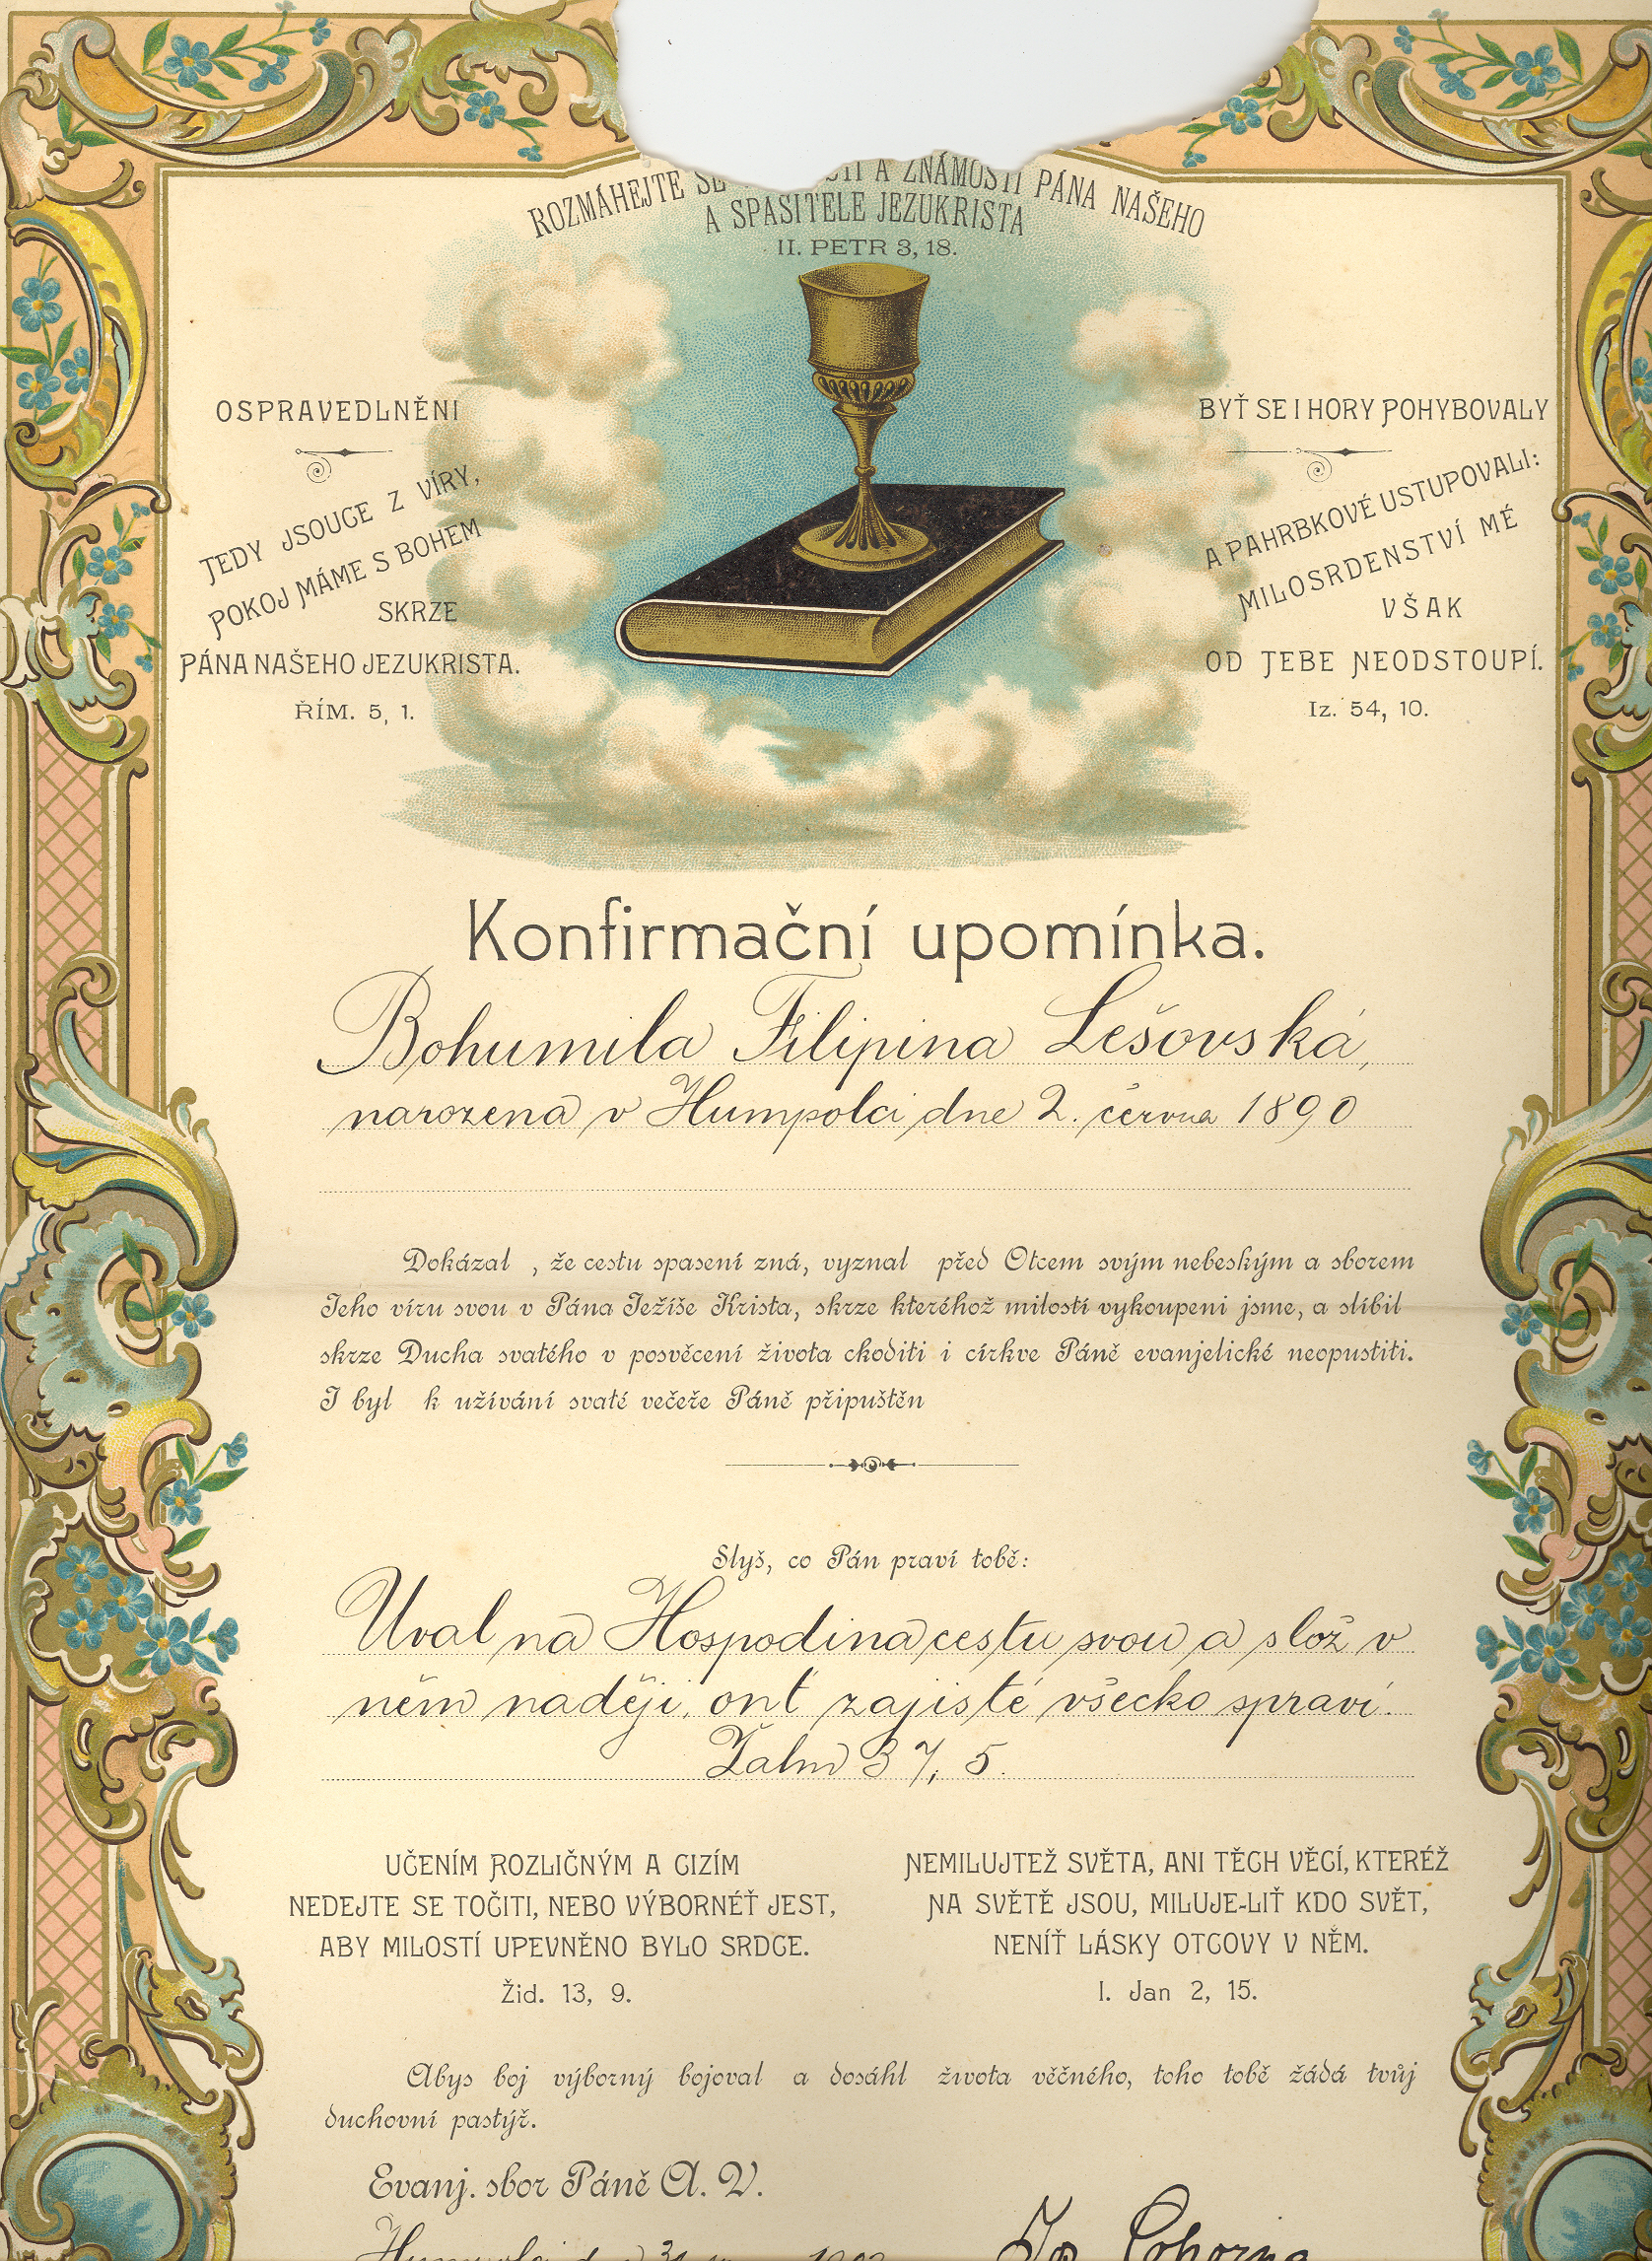 ROZMÁHEJTE SE A ZNÁMOSTI PÁNA NAŠEHO
A SPASITELE JEZUKRISTA
II. PETR 3, 18.
OSPRAVEDLNĚNI
TEDY JSOUCE Z VÍRY,
POKOJ MÁME S BOHEM
SKRZE
PÁNA NAŠEHO JEZUKRISTA.
ŘÍM. 5, 1.
BYŤ SE I HORY POHYBOVALY
A PAHRBKOVÉ USTUPOVALI:
MILOSRDENSTVÍ MÉ
VŠAK
OD TEBE NEODSTOUPÍ.
Iz. 54, 10.
Konfirmační upomínka.
Bohumila Filipina Lešovská,
narozena v Humpolci dne 2. června 1890
Dokázal , že cestu spasení zná, vyznal před Otcem svým nebeským a sborem
Jeho víru svou v Pána Ježíše Krista, skrze kteréhož milostí vykoupeni jsme, a slíbil
skrze Ducha svatého v posvěcení života choditi i církve Páně evanjelické neopustiti.
I byl k užívání svaté večeře Páně připuštěn
Slyš, co Pán praví tobě:
Uval na Hospodina cestu svou a slož v
něm naději, onť zajisté všecko spraví.
Žalm 37, 5.
UČENÍM ROZLIČNÝM A CIZÍM
NEDEJTE SE TOČITI, NEBO VÝBORNÉŤ JEST,
ABY MILOSTÍ UPEVNĚNO BYLO SRDCE.
Žid. 13, 9.
NEMILUJTEŽ SVĚTA, ANI TĚCH VĚCÍ, KTERÉŽ
NA SVĚTĚ JSOU, MILUJE-LIŤ KDO SVĚT,
NENÍŤ LÁSKY OTCOVY V NĚM.
I. Jan 2, 15.
Abys boj výborný bojoval a dosáhl života věčného, toho tobě žádá tvůj
duchovní pastýř.
Evanj. sbor Páně A. V.